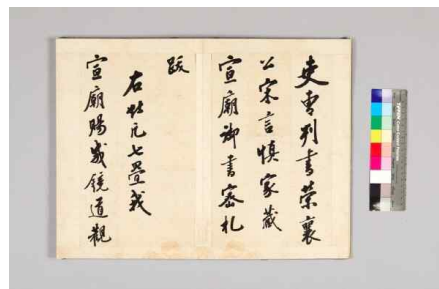 吏曹判書榮襄
公宋言慎家藏
宣廟御書密札
跋
右壯元七疊我
宣廟賜咸鏡道觀